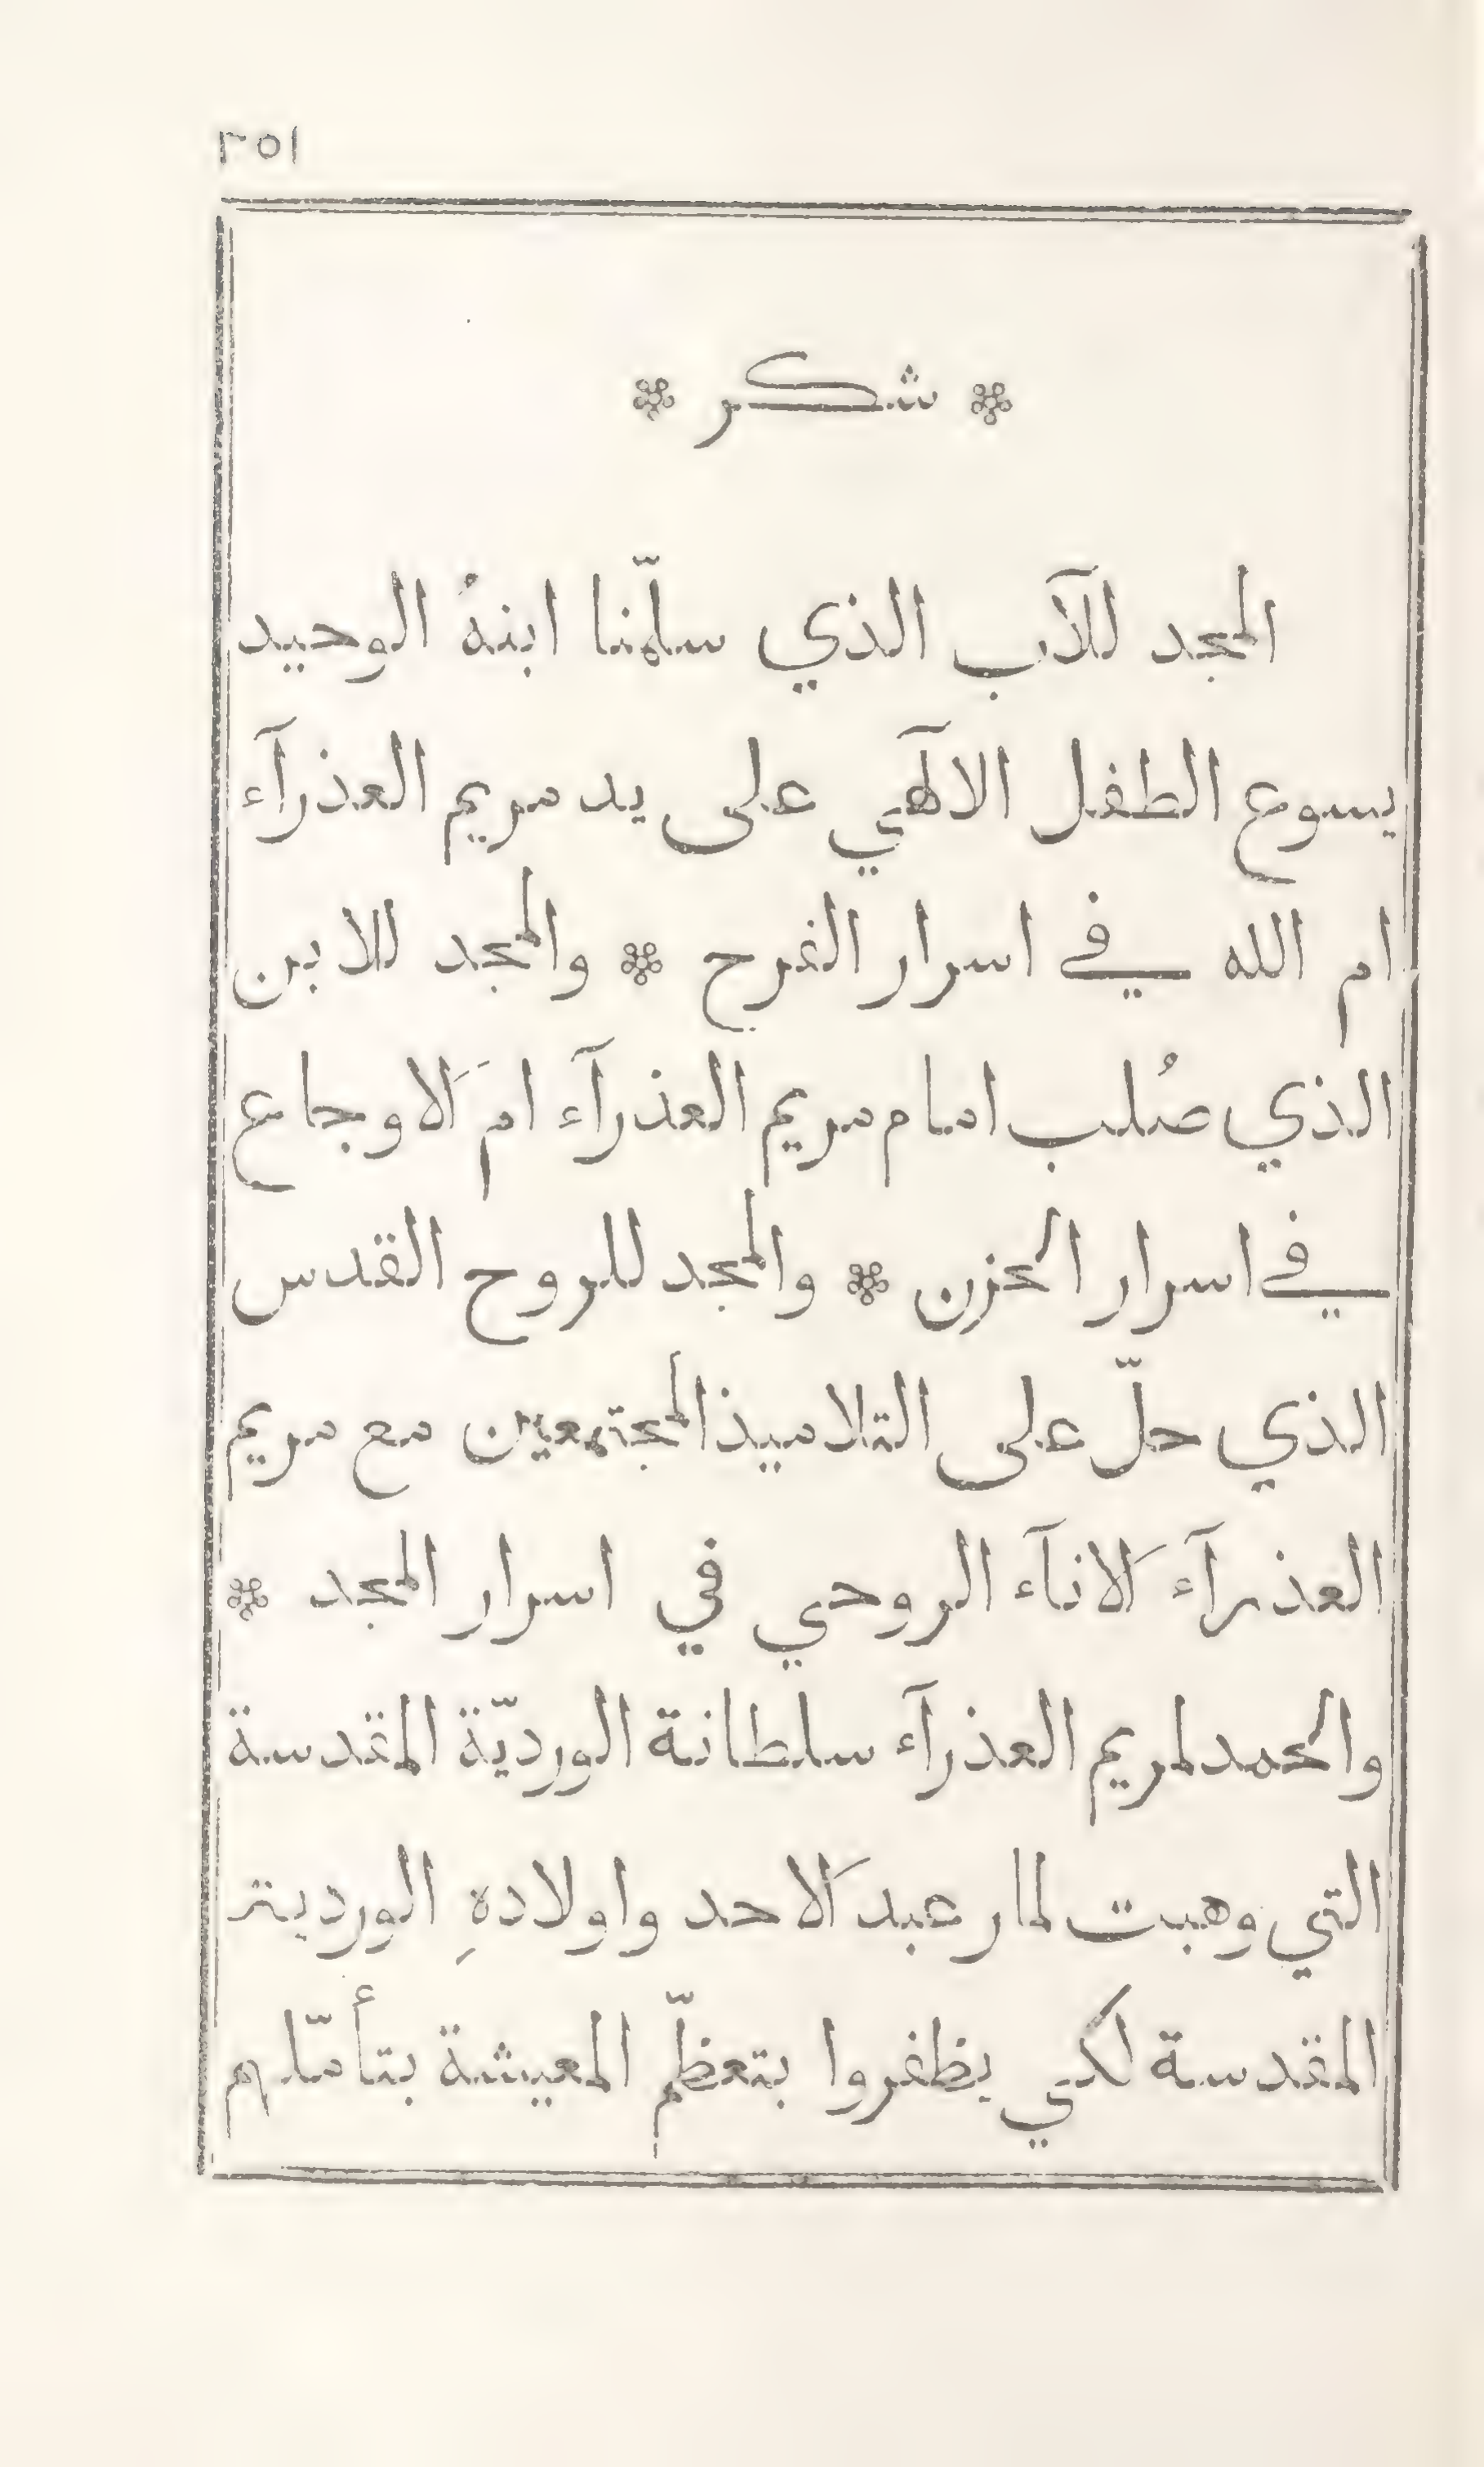 ٣٥١
❊ شكر ❊
المجد للآب الذي سلّمنا ابنهُ الوحيد
يسوع الطفل الالٓهي على يد مريم العذرآء
ام الله في اسرار الفرح ❊ والمجد للابن
الذي صُلب امام مريم العذرآء ام الَاوجاع
في اسرار الحزن ❊ والمجد للروح القدس
الذي حلّ على التلاميذ المجتمعين مع مريم
العذرآء الَانآء الروحي في اسرار المجد ❊
والحمد لمريم العذرآء سلطانة الورديّة المقدسة
التي وهبت لمار عبد الَاحد واولادهِ الوردية
المقدسة لكي يظفروا بتعظّم المعيشة بتأمّلهم